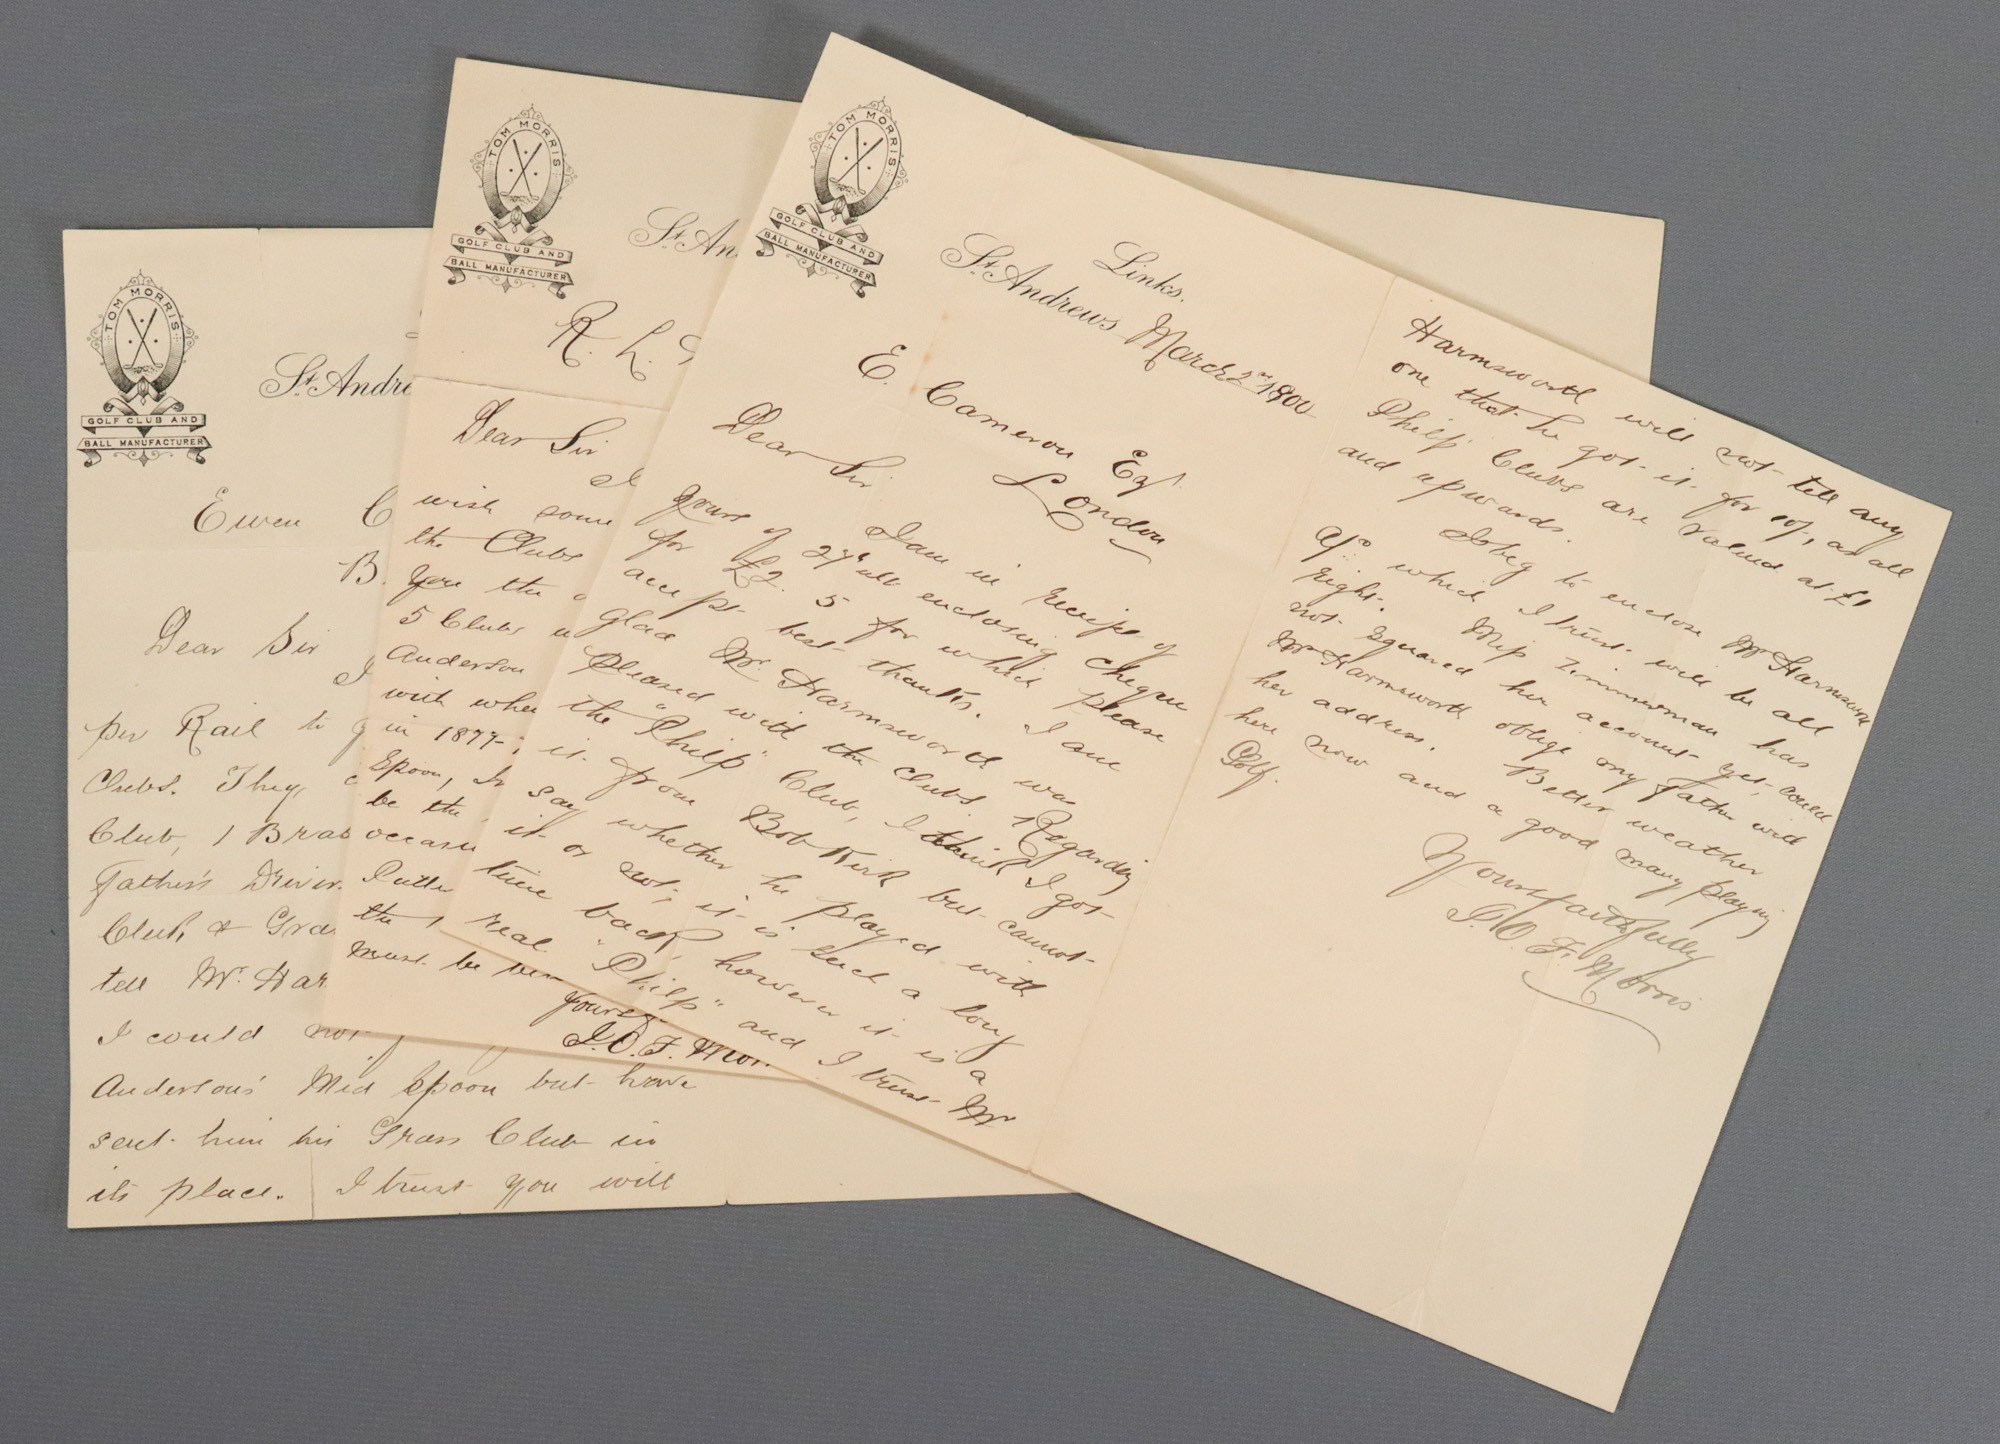 TOM MORRIS
GOLF CLUB AND
BALL MANUFACTURER
St. Andre
Ewen C
B.
Dear Sir
I
per Rail to y
Clubs. They,
Club, 1 Bras
Father's Driver.
Club, & Gra
tell Mr. Har
I could not
Anderson's Mid Spoon but have
sent him his Grass Club in
its place. I trust you will
TOM MORRIS
GOLF CLUB AND
BALL MANUFACTURER
St. An
R. L.
Dear Sir
I
wish some
the Clubs
you the
5 Clubs
Anderson
with whe
in 1877
Spoon,
be the
occasi
Putte
the
must be
Yours
J.O.F. Mor
TOM MORRIS
GOLF CLUB AND
BALL MANUFACTURER
Links.
St. Andrews March 2nd 1900
E. Cameron Esq.
London
Dear Sir
I am in receipt of
yours of 27th ult enclosing cheque
for £2. 5 for which please
accept best thanks. I am
glad Mr. Harmsworth was
pleased with the clubs. Regarding
the "Philp" Club, I think I got
it from Bob Kirk but cannot
say whether he played with
it or not, it is such a long
time back, however it is a
real "Philp" and I trust Mr
Harmsworth will not tell any
one that he got it for 10/, as all
Philp Clubs are valued at £1
and upwards.
I beg to enclose Mr Harmsworth
a/c which I trust will be all
right. Miss Zimmerman has
not squared her account yet, could
Mr Harmsworth oblige my Father with
her address. Better weather
here now and a good many playing
Golf.
Yours faithfully
J.O.F. Morris